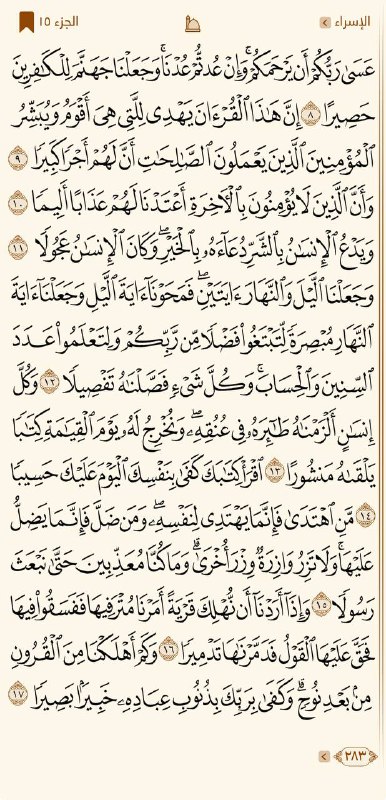 الإسراء الجزء ١٥
عَسَىٰ رَبُّكُمْ أَن يَرْحَمَكُمْ ۚ وَإِنْ عُدتُّمْ عُدْنَا ۘ وَجَعَلْنَا جَهَنَّمَ لِلْكَٰفِرِينَ
حَصِيرًا ٨ إِنَّ هَٰذَا ٱلْقُرْءَانَ يَهْدِى لِلَّتِى هِىَ أَقْوَمُ وَيُبَشِّرُ
ٱلْمُؤْمِنِينَ ٱلَّذِينَ يَعْمَلُونَ ٱلصَّٰلِحَٰتِ أَنَّ لَهُمْ أَجْرًا كَبِيرًا ٩
وَأَنَّ ٱلَّذِينَ لَا يُؤْمِنُونَ بِٱلْءَاخِرَةِ أَعْتَدْنَا لَهُمْ عَذَابًا أَلِيمًا ١٠
وَيَدْعُ ٱلْإِنسَٰنُ بِٱلشَّرِّ دُعَآءَهُۥ بِٱلْخَيْرِ ۖ وَكَانَ ٱلْإِنسَٰنُ عَجُولًا ١١
وَجَعَلْنَا ٱلَّيْلَ وَٱلنَّهَارَ ءَايَتَيْنِ ۖ فَمَحَوْنَآ ءَايَةَ ٱلَّيْلِ وَجَعَلْنَآ ءَايَةَ
ٱلنَّهَارِ مُبْصِرَةً لِّتَبْتَغُوا۟ فَضْلًا مِّن رَّبِّكُمْ وَلِتَعْلَمُوا۟ عَدَدَ
ٱلسِّنِينَ وَٱلْحِسَابَ ۚ وَكُلَّ شَىْءٍ فَصَّلْنَٰهُ تَفْصِيلًا ١٢ وَكُلَّ
إِنسَٰنٍ أَلْزَمْنَٰهُ طَٰٓئِرَهُۥ فِى عُنُقِهِۦ ۖ وَنُخْرِجُ لَهُۥ يَوْمَ ٱلْقِيَٰمَةِ كِتَٰبًا
يَلْقَىٰهُ مَنشُورًا ١٣ ٱقْرَأْ كِتَٰبَكَ كَفَىٰ بِنَفْسِكَ ٱلْيَوْمَ عَلَيْكَ حَسِيبًا
١٤ مَّنِ ٱهْتَدَىٰ فَإِنَّمَا يَهْتَدِى لِنَفْسِهِۦ ۖ وَمَن ضَلَّ فَإِنَّمَا يَضِلُّ
عَلَيْهَا ۚ وَلَا تَزِرُ وَازِرَةٌ وِزْرَ أُخْرَىٰ ۗ وَمَا كُنَّا مُعَذِّبِينَ حَتَّىٰ نَبْعَثَ
رَسُولًا ١٥ وَإِذَآ أَرَدْنَآ أَن نُّهْلِكَ قَرْيَةً أَمَرْنَا مُتْرَفِيهَا فَفَسَقُوا۟ فِيهَا
فَحَقَّ عَلَيْهَا ٱلْقَوْلُ فَدَمَّرْنَٰهَا تَدْمِيرًا ١٦ وَكَمْ أَهْلَكْنَا مِنَ ٱلْقُرُونِ
مِنۢ بَعْدِ نُوحٍ ۗ وَكَفَىٰ بِرَبِّكَ بِذُنُوبِ عِبَادِهِۦ خَبِيرًۢا بَصِيرًا ١٧
٢٨٣